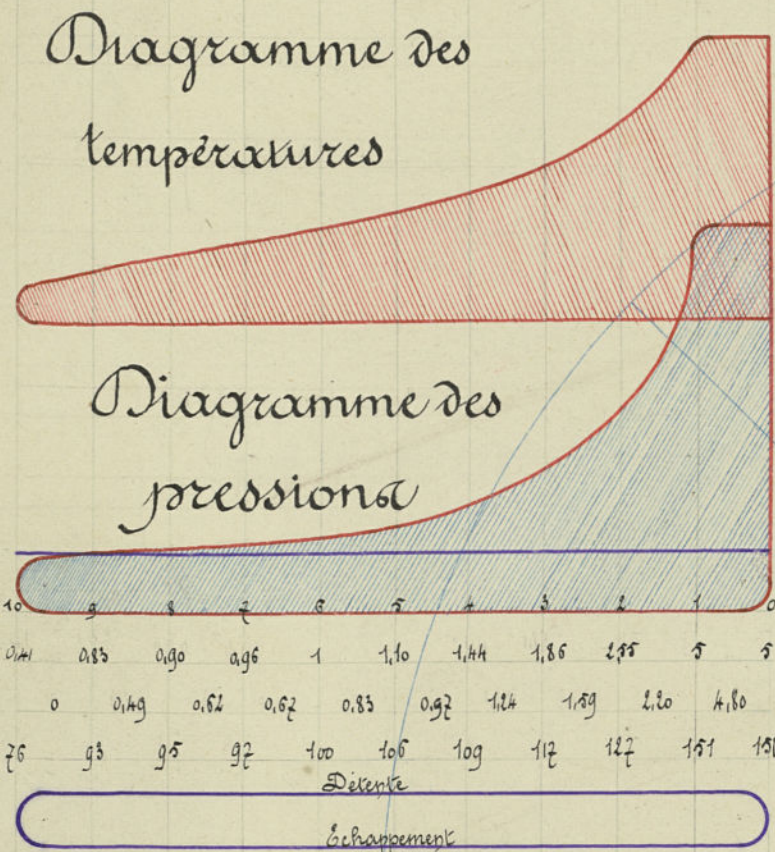 Diagramme des
températures
Diagramme des
pressions
10 9 8 7 6 5 4 3 2 1 0
0,41 0,83 0,90 0,96 1 1,10 1,44 1,86 2,55 5 5
0 0,49 0,62 0,67 0,83 0,97 1,24 1,59 2,20 4,80
76 93 95 97 100 106 109 117 127 151
Détente
Echappement